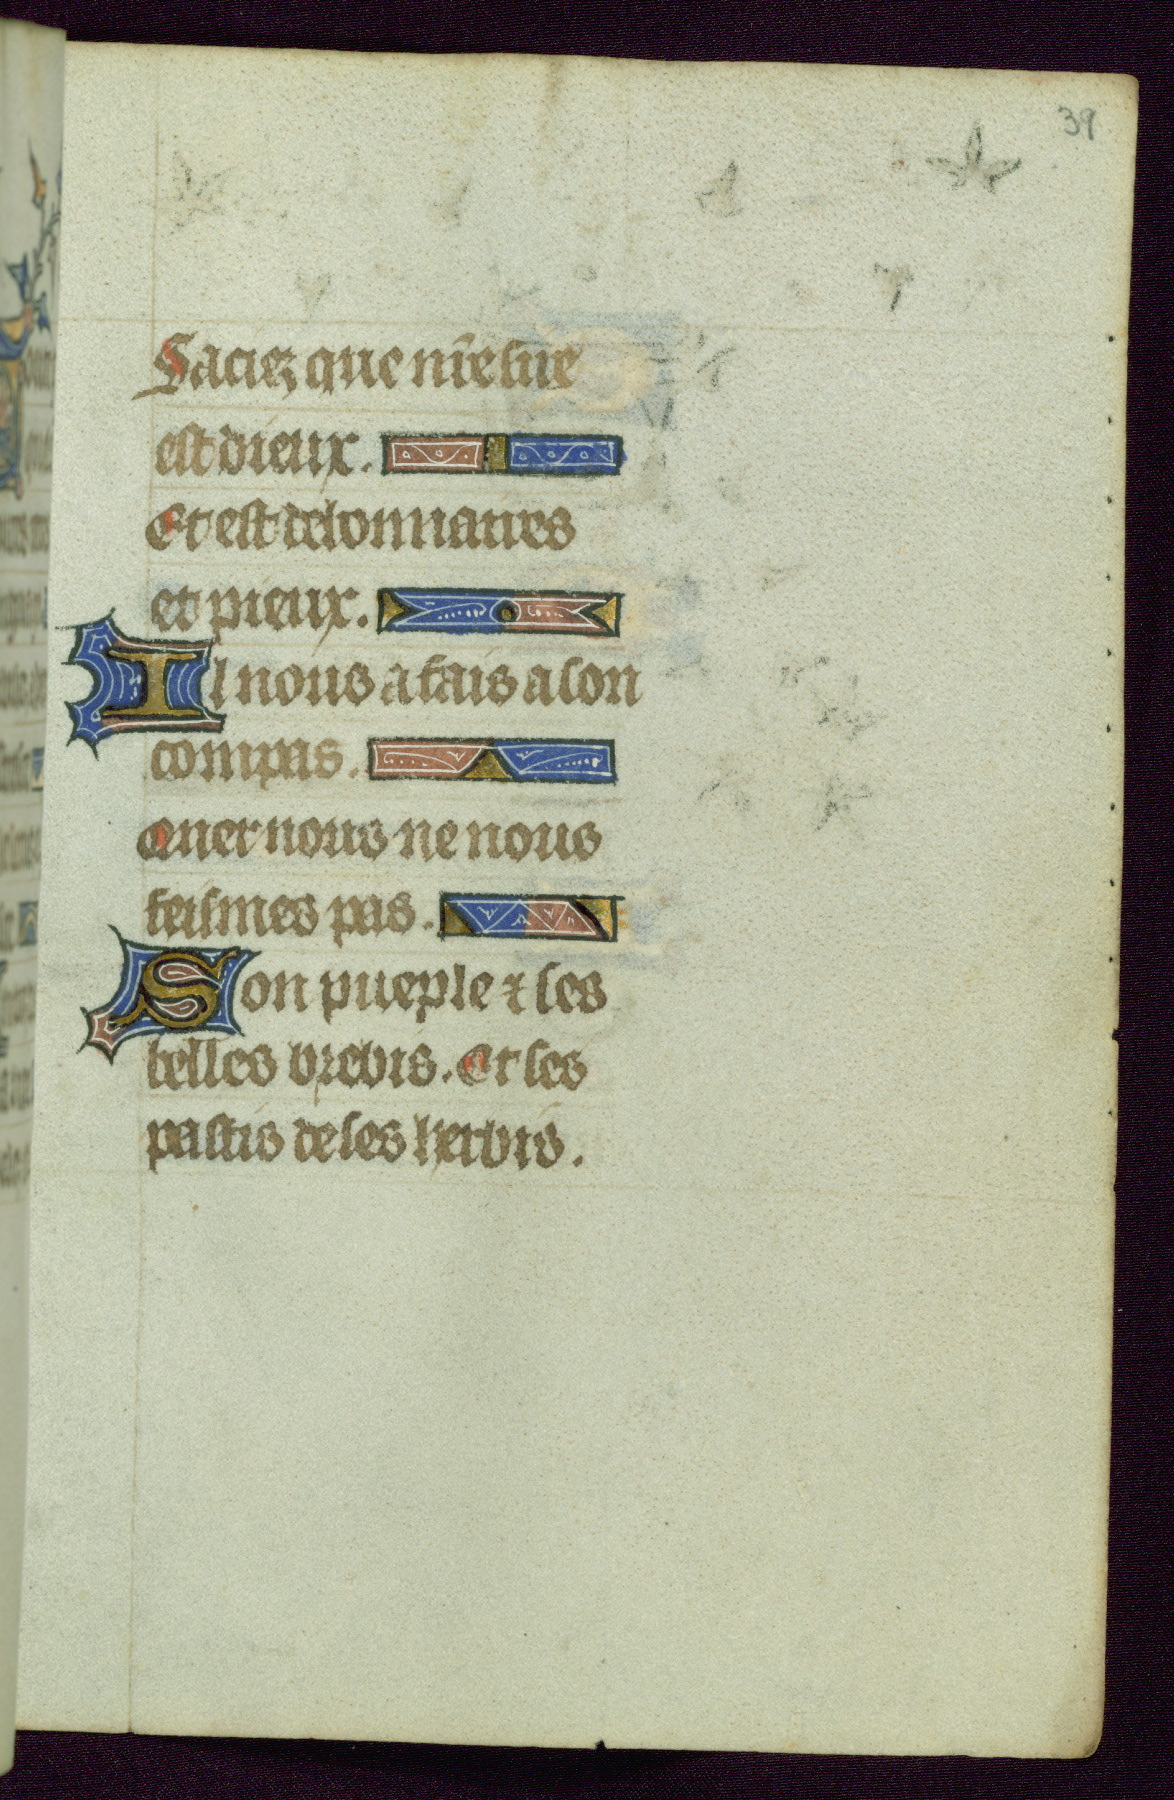 39
Saciez que nr̃e sire
est dieux.
Et est debonnaires
et pieux.
Il nous a fais a son
compas.
Ener nous ne nous
feismes pas.
Son pueple ⁊ ses
belles brebis. Et ses
pastis de ses herbis.